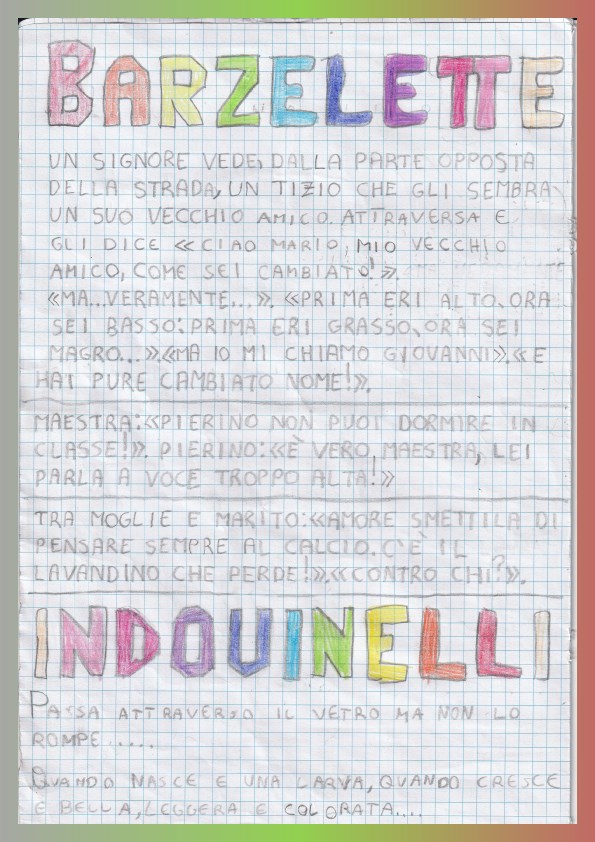 BARZELETTE
UN SIGNORE VEDE, DALLA PARTE OPPOSTA
DELLA STRADA, UN TIZIO CHE GLI SEMBRA
UN SUO VECCHIO AMICO. ATTRAVERSA E
GLI DICE «CIAO MARIO, MIO VECCHIO
AMICO, COME SEI CAMBIATO!».
«MA...VERAMENTE...». «PRIMA ERI ALTO, ORA
SEI BASSO: PRIMA ERI GRASSO, ORA SEI
MAGRO...».«MA IO MI CHIAMO GIOVANNI».«E
HAI PURE CAMBIATO NOME!».
MAESTRA:«PIERINO NON PUOI DORMIRE IN
CLASSE!». PIERINO:«È VERO, MAESTRA, LEI
PARLA A VOCE TROPPO ALTA!»
TRA MOGLIE E MARITO:«AMORE SMETTILA DI
PENSARE SEMPRE AL CALCIO. C'È IL
LAVANDINO CHE PERDE!».«CONTRO CHI?».
INDOUINELLI
PASSA ATTRAVERSO IL VETRO MA NON LO
ROMPE.....
QUANDO NASCE E UNA LARVA, QUANDO CRESCE
E BELLA, LEGGERA E COLORATA....